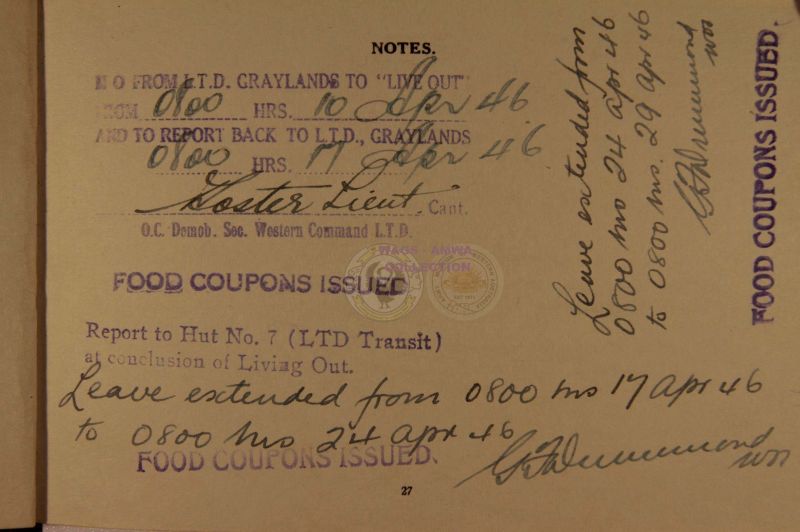 NOTES.
M O FROM L.T.D. GRAYLANDS TO "LIVE OUT"
FROM 0800 HRS. 10 Apr 46
AND TO REPORT BACK TO L.T.D., GRAYLANDS
0800 HRS. 17 Apr 46
Lieut Capt.
O.C. Demob. Sec. Western Command L.T.D.
WAGS - AMWA
COLLECTION
FOOD COUPONS ISSUED
Report to Hut No. 7 (LTD Transit)
at conclusion of Living Out.
Leave extended from 0800 hrs 17 Apr 46
to 0800 hrs 24 Apr 46
FOOD COUPONS ISSUED.
Drummond
27
Leave extended from
0800 hrs 24 Apr 46
to 0800 hrs. 29 Apr 46
Drummond
FOOD COUPONS ISSUED.